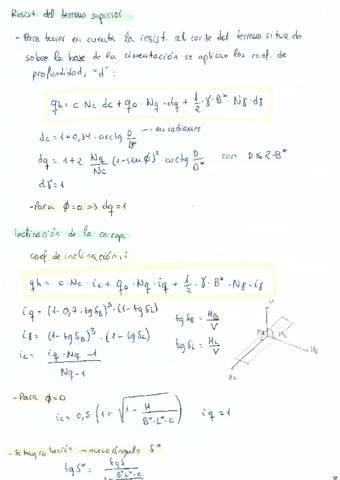 Resist. del terreno superior
- Para tener en cuenta la resist. al corte del terreno situado
sobre la base de la cimentación se aplican los coef. de
profundidad, "d":
qh = c·Nc·dc + q0·Nq·dq + 1/2·γ·B*·Nγ·dγ
dc = 1 + 0,34·arctg D/B* → en radianes
dq = 1 + 2 Nq/Nc (1-sin ϕ)² arctg D/B* con D ≤ 2·B*
dγ = 1
- Para ϕ=0 => dq=1
Inclinación de la carga
coef. de inclinación, i
qh = c·Nc·ic + q0·Nq·iq + 1/2·γ·B*·Nγ·iγ
iq = (1-0,7·tgδB)³·(1-tgδL) tgδB = HB/V
iγ = (1-tgδB)³·(1-tgδL) tgδL = HL/V
ic = iq·Nq-1 / Nq-1
V
HB
HL
- Para ϕ=0
ic = 0,5 (1+√(1 - H/B*·L*·c)) iq=1
- Si hay cohesión → nuevo ángulo δ*
tgδ* = tgδ
B*L*·c